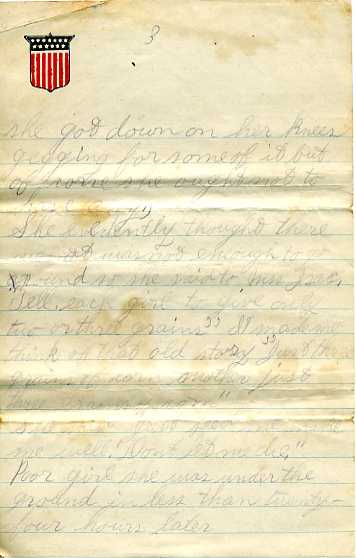 3
she got down on her knees
begging for some of it but
of course she ought not to
have any."
She evidently thought there
was not enough to go
around so she said to Miss
"Tell each girl to give only
two or three grains" It made me
think of that old story "Just three
grains of corn mother just
three grains of corn"
She said
me well. "Dont let me die,"
Poor girl she was under the
ground in less than twenty-
four hours later